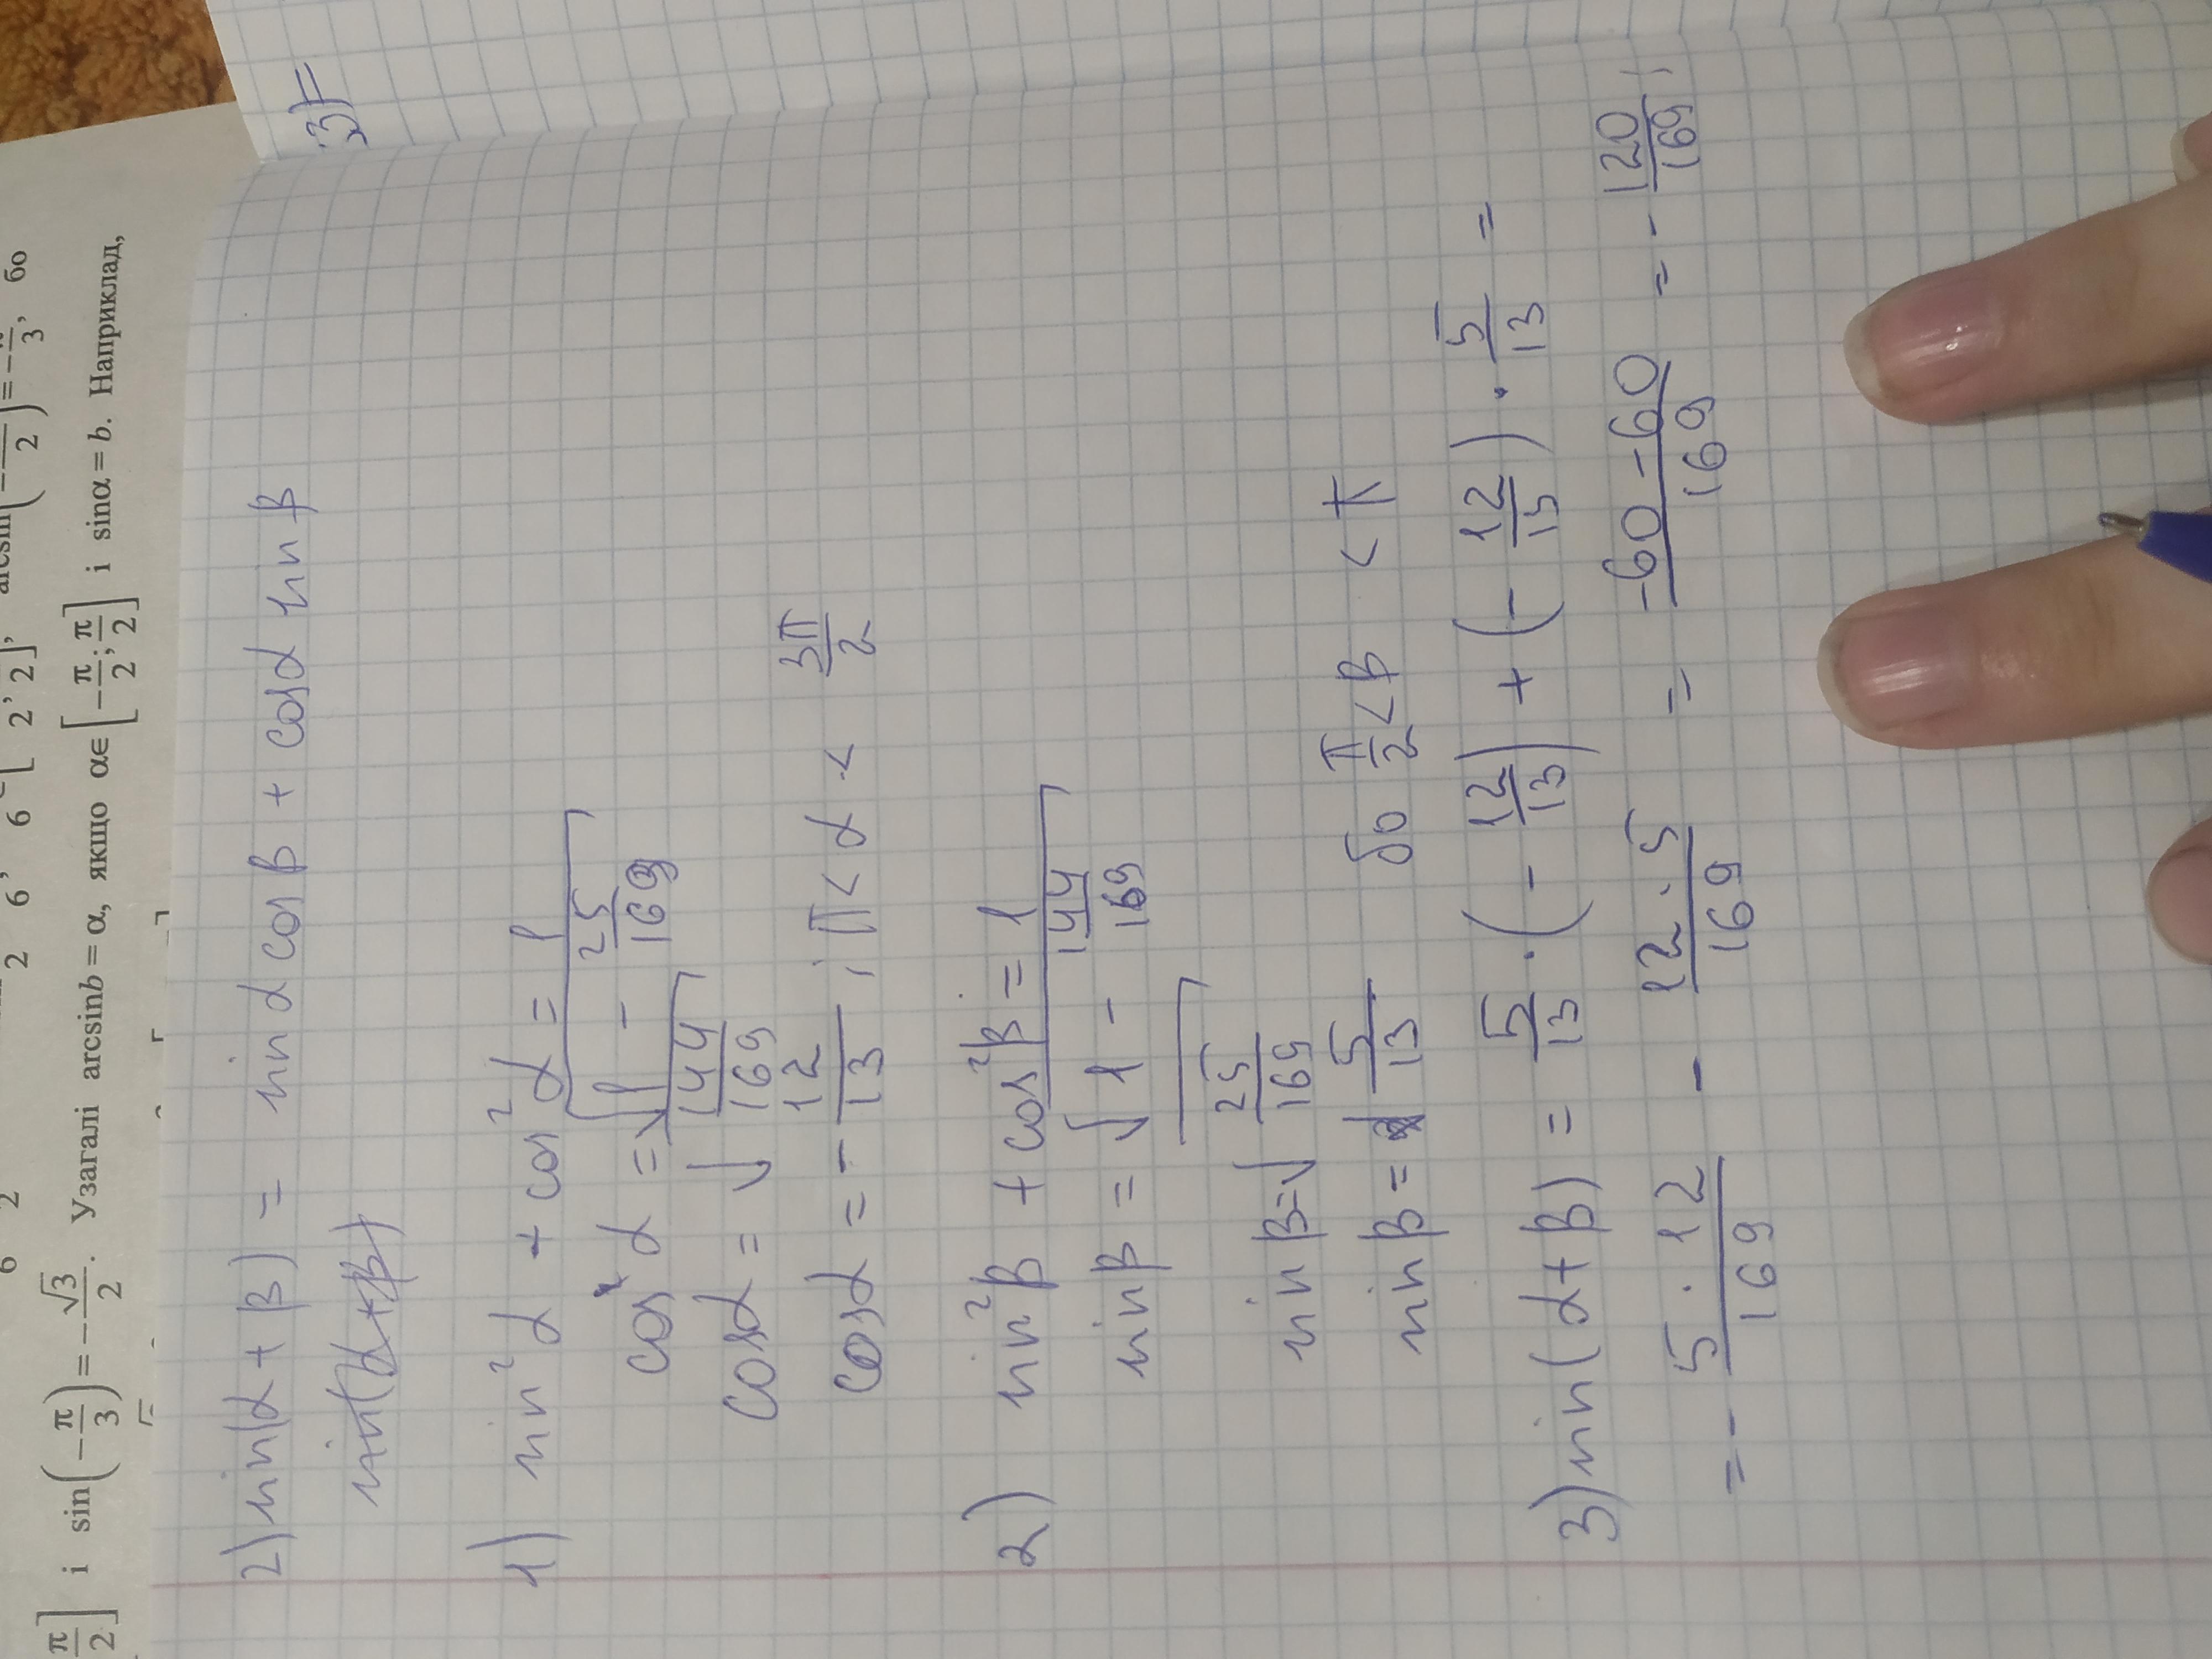 6 2 6, 6 [ 2, 2], arcsin(-—/2) = -—/3, бо
π/2] і sin(-π/3) = -√3/2. Узагалі arcsinb = α, якщо α∈[-π/2; π/2] і sinα = b. Наприклад,
2) sin(α + β) = sin α cos β + cos α sin β
sin(α+β)
1) sin²α + cos²α = 1
cos α = √1 - 25/169
cos α = √144/169
cos α = - 12/13 ; π < α < 3π/2
2) sin²β + cos²β = 1
sin β = √1 - 144/169
sin β = √25/169
sin β = 5/13 бо π/2 < β < π
3) sin(α + β) = 5/13 · (- 12/13) + (- 12/13) · 5/13 =
= - 5 · 12/169 - 12 · 5/169 = -60 - 60/169 = - 120/169 ;
3) =